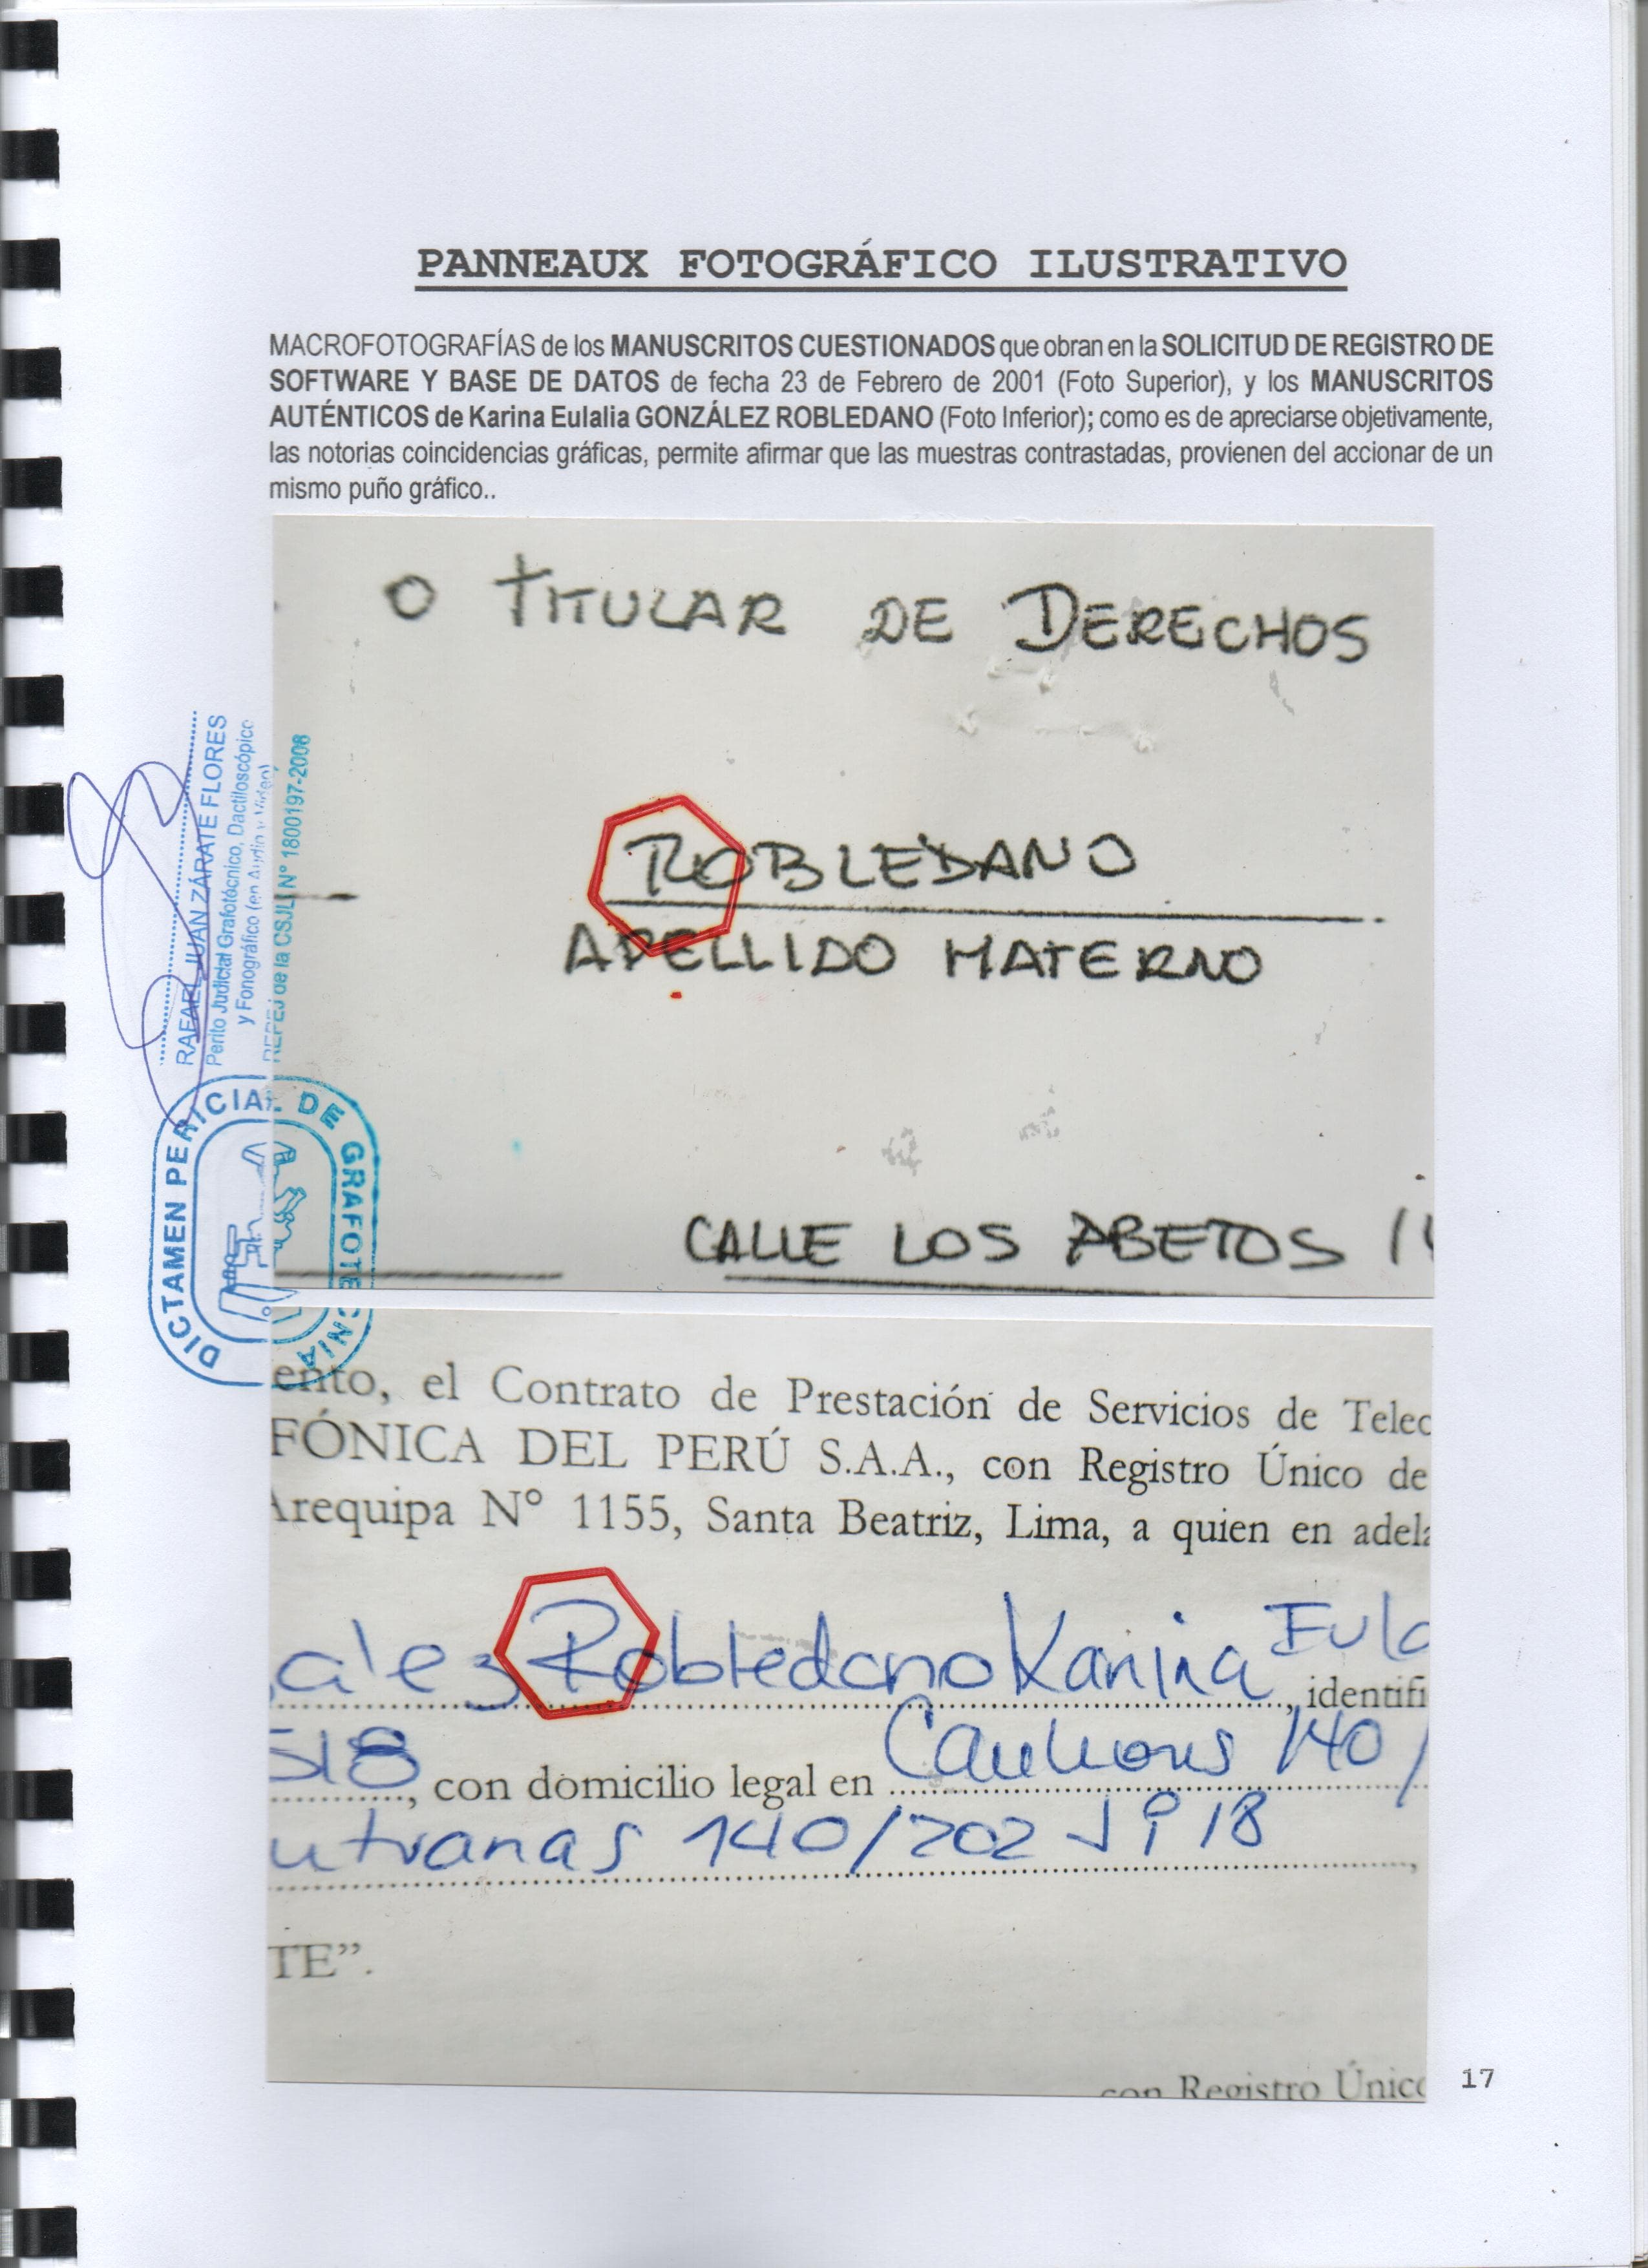 PANNEAUX FOTOGRÁFICO ILUSTRATIVO
MACROFOTOGRAFÍAS de los MANUSCRITOS CUESTIONADOS que obran en la SOLICITUD DE REGISTRO DE
SOFTWARE Y BASE DE DATOS de fecha 23 de Febrero de 2001 (Foto Superior), y los MANUSCRITOS
AUTÉNTICOS de Karina Eulalia GONZÁLEZ ROBLEDANO (Foto Inferior); como es de apreciarse objetivamente,
las notorias coincidencias gráficas, permite afirmar que las muestras contrastadas, provienen del accionar de un
mismo puño gráfico..
O TITULAR DE DERECHOS
ROBLEDANO
APELLIDO MATERNO
CALLE LOS ABETOS
RAFAEL JUAN ZÁRATE FLORES
Perito Judicial Grafotécnico, Dactiloscópico
y Fonográfico (en Audio y Video)
REPEJ de la CSJLI N° 1800197-2008
DICTAMEN PERICIAL DE GRAFOTECNIA
ento, el Contrato de Prestación de Servicios de Telec
FÓNICA DEL PERÚ S.A.A., con Registro Único de
Arequipa N° 1155, Santa Beatriz, Lima, a quien en adela
alez Robledano Karina Eula, identifi
518, con domicilio legal en 140/
140/202 18
TE”.
con Registro Único
17